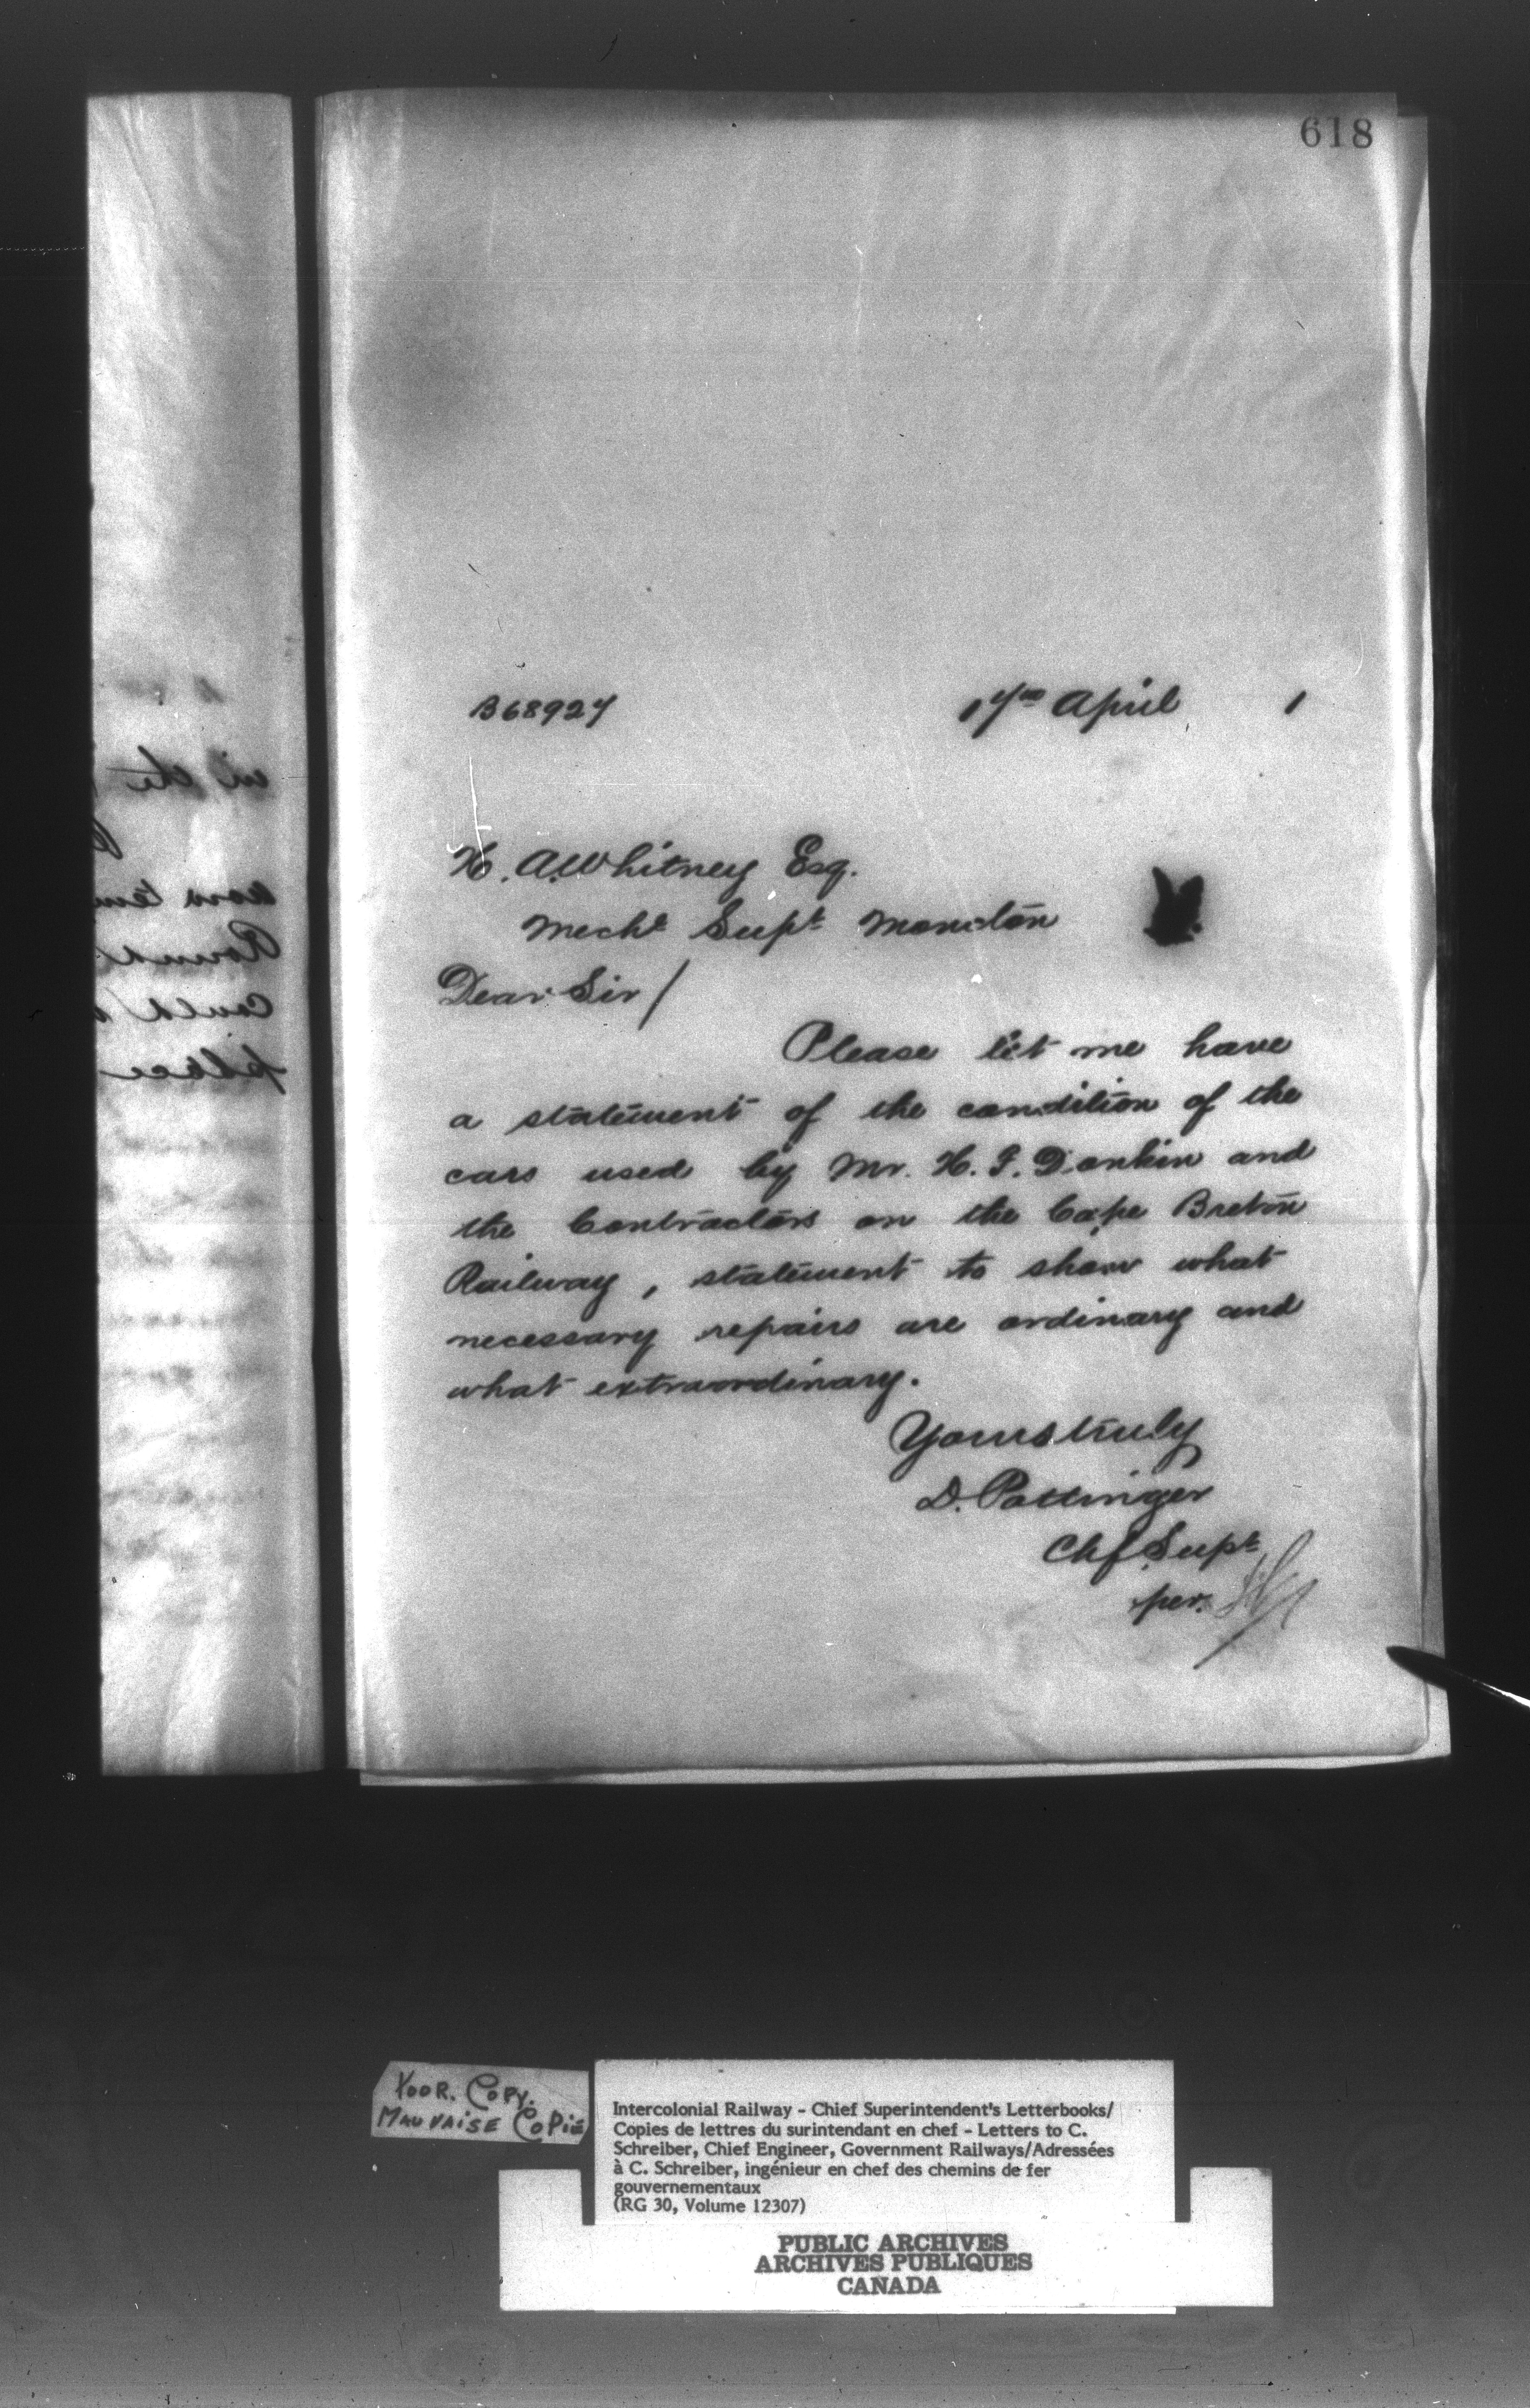 618
B68927
17th April 1
H. A. Whitney Esq.
Mechl Supt Moncton
Dear Sir /
Please let me have
a statement of the condition of the
cars used by Mr. H. F. Donkin and
the Contractors on the Cape Breton
Railway, statement to show what
necessary repairs are ordinary and
what extraordinary.
Yours truly
D. Pottinger
Chf Supt
per.
in the
now
Round
Could
place
POOR. COPY.
MAUVAISE COPIE
Intercolonial Railway - Chief Superintendent's Letterbooks/
Copies de lettres du surintendant en chef - Letters to C.
Schreiber, Chief Engineer, Government Railways/Adressées
à C. Schreiber, ingénieur en chef des chemins de fer
gouvernementaux
(RG 30, Volume 12307)
PUBLIC ARCHIVES
ARCHIVES PUBLIQUES
CANADA